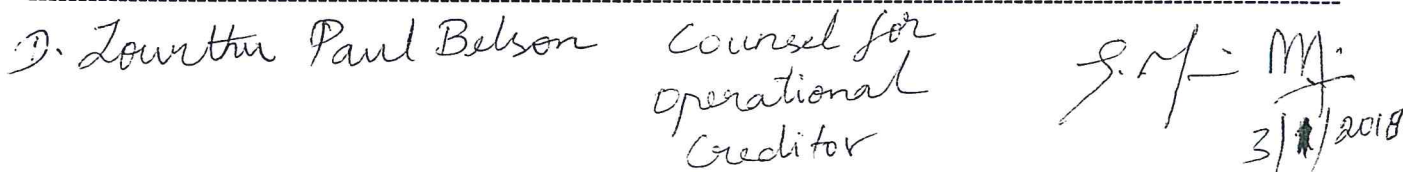 D. Lourthu Paul Belson Counsel for
operational
Creditor
3/1/2018